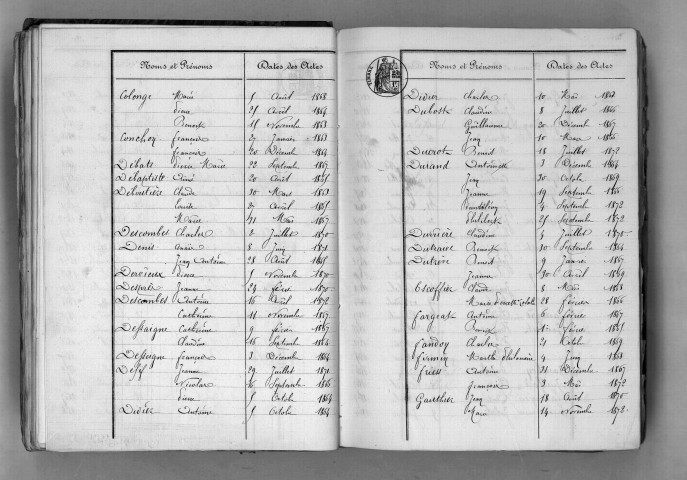 Noms et Prénoms Dates des Actes
Colonge Marie 5 Avril 1868
25 Avril 1864
Benoit 15 Novembre 1863
Conchon françois 2 Janvier 1863
françois 20 Décembre 1864
Debats Marie 22 Septembre 1867
Debaptiste 20 Août
Deboutière Claude 30 Mars 1863
Louise 2 Avril 1865
Marie 31 Mai 1867
Descombes Charles 2 Juillet 1870
Denis 8 Juin 1871
Jean Antoine 28 Août 1865
Dérieux Pierre 5 Novembre 1870
Jeanne 24 février 1870
Descombes Antoine 16 Avril 1872
Catherine 11 Novembre 1867
Dessaigne Catherine 9 février 1867
Claudine 16 Septembre 1864
Dessaigne françois 3 Décembre 1864
Jeanne 29 Juillet 1871
Nicolas 16 Septembre 1866
Pierre 5 Octobre 1864
Didier Antoine 5 Octobre 1864
Noms et Prénoms Dates des Actes
Didier Charles 10 Mai
Dubost Claudine 8 Juillet 1866
Guillaume 20 Décembre 1867
Jean 10 Mars
Ducrot Benoit 18 Juillet 1872
Durand Antoinette 3 Décembre 1864
Jean 30 Octobre 1869
Jeanne 19 Septembre 1866
4 Septembre 1872
Philibert 25 Septembre 1872
Claudine 4 Juillet 1870
Dutraive Benoit 30 Septembre 1864
Benoit 9 Janvier 1867
Jeanne 30 Avril 1869
Claude 8 Mars 1868
28 février 1866
fargeat Antoine 6 février 1867
Benoit 12 février
Charles 21 Octobre 1869
Marthe Philomène 4 Juin 1868
Antoine 31 Décembre 1867
françois 3 Mai 1872
Gauthier Jean 18 Août 1870
14 Novembre 1872